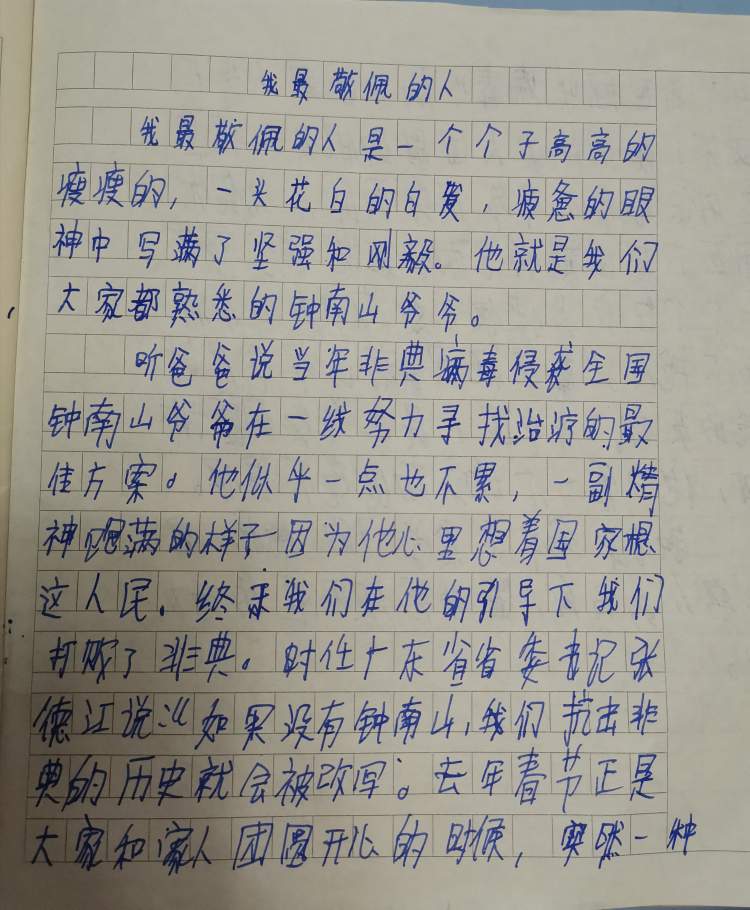 我最敬佩的人
我最敬佩的人是一个个子高高的
瘦瘦的，一头花白的白发，疲惫的眼
神中写满了坚强和刚毅。他就是我们
大家都熟悉的钟南山爷爷。
听爸爸说当年非典病毒侵袭全国
钟南山爷爷在一线努力寻找治疗的最
佳方案。他似乎一点也不累，一副精
神饱满的样子因为他心里想着国家想
这人民。终于我们在他的引导下我们
打败了非典。时任广东省省委书记张
德江说："如果没有钟南山，我们抗击非
典的历史就会被改写"。去年春节正是
大家和家人团圆开心的时候，突然一种